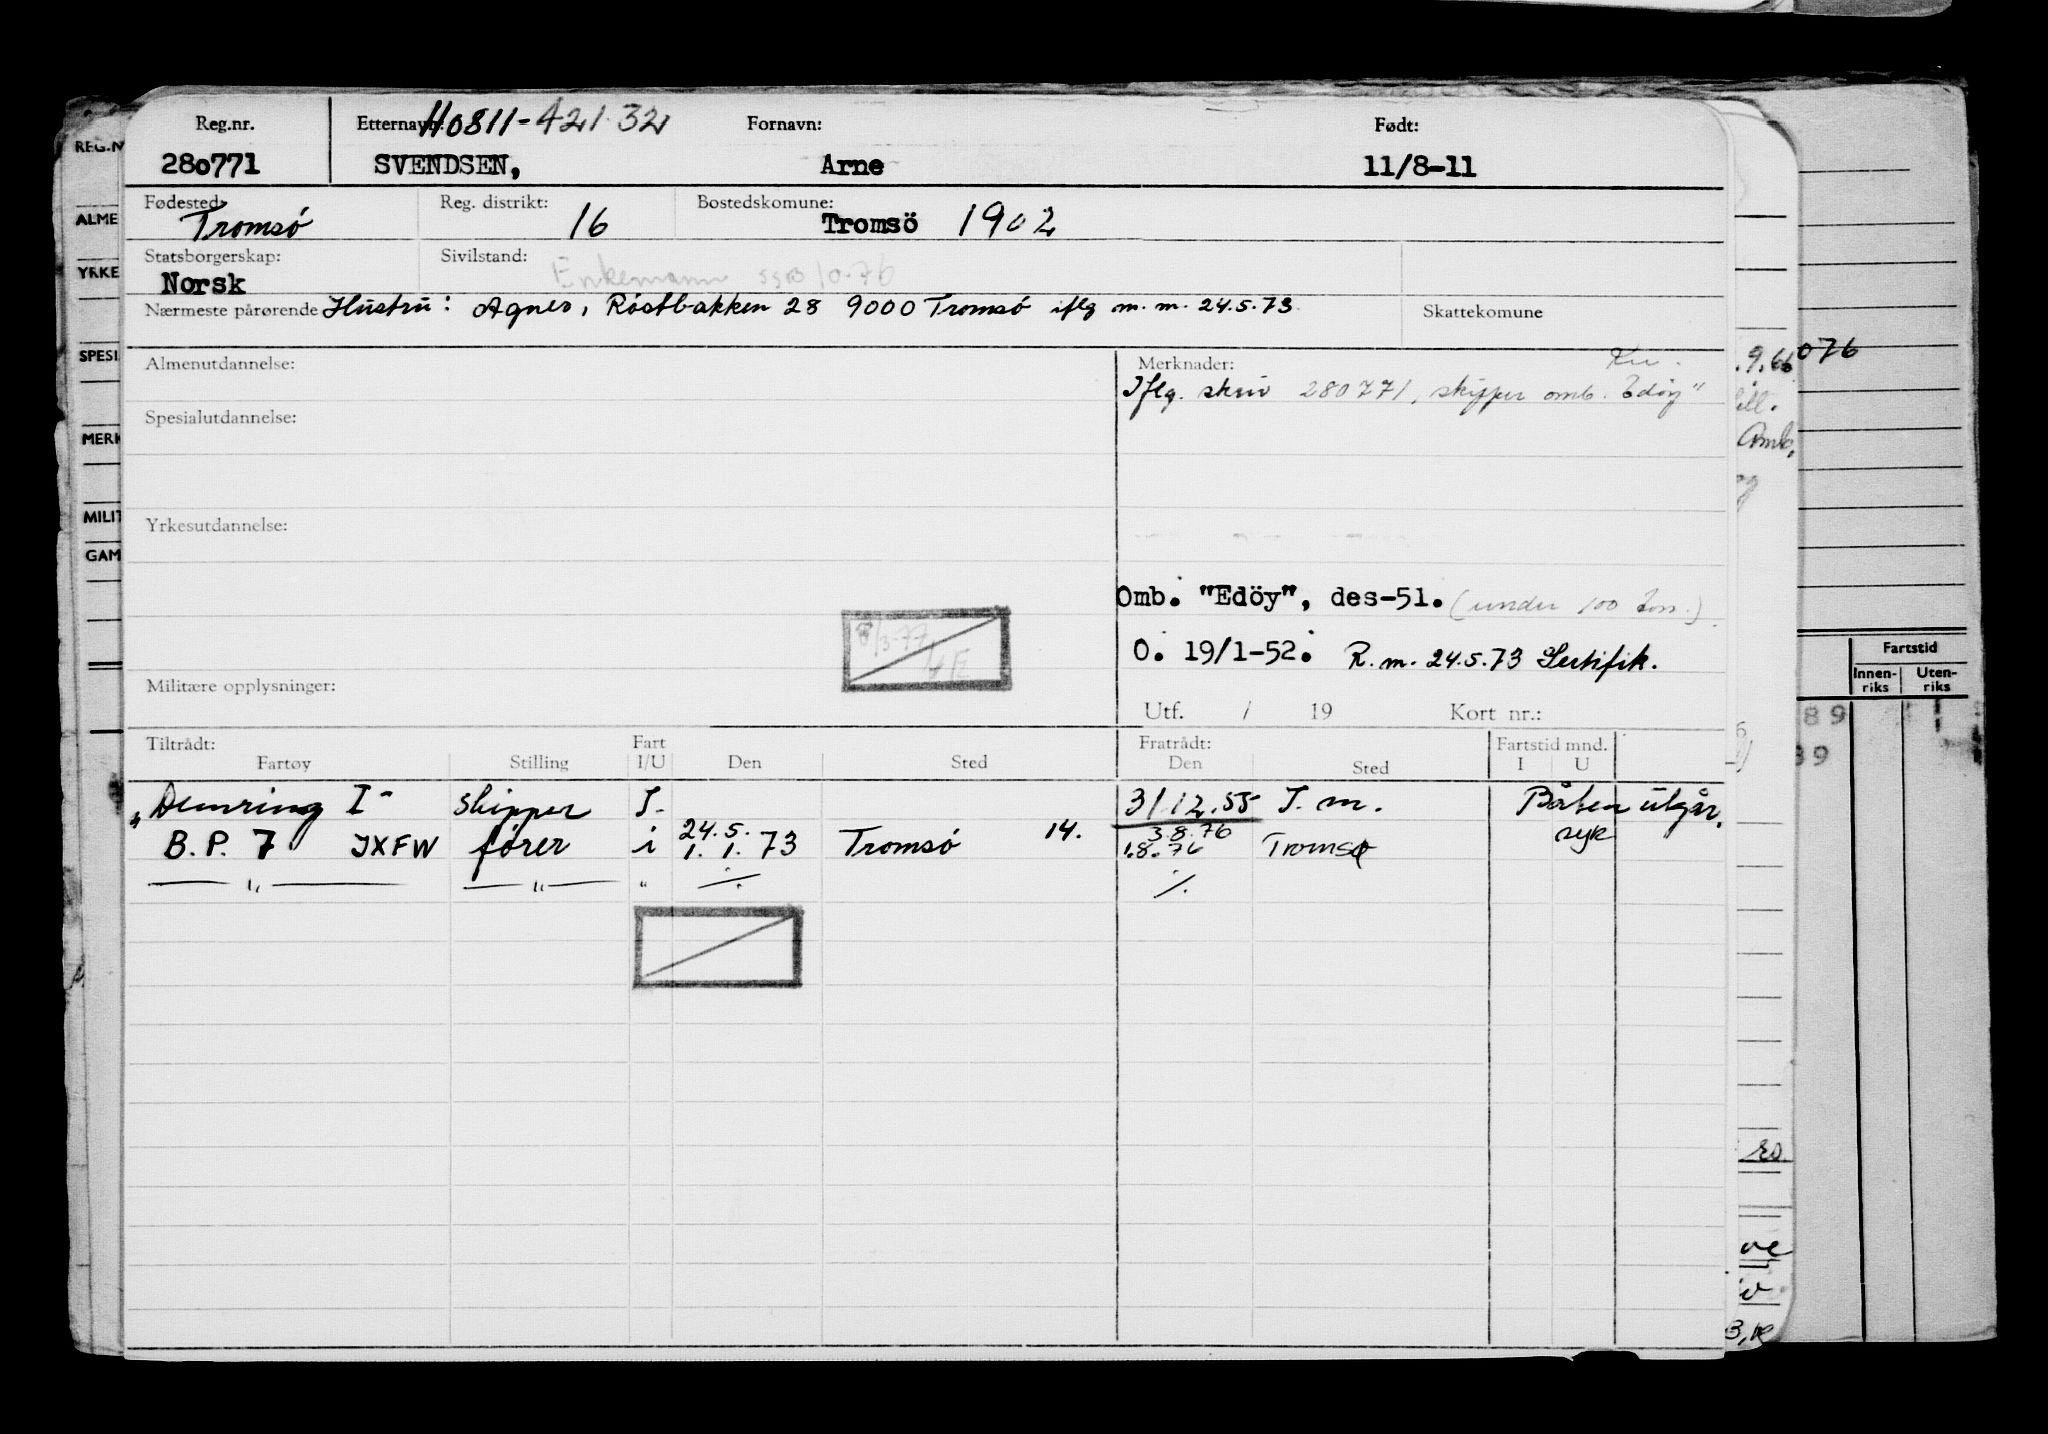 Reg.nr. Etternavn: H0811-421 32 Fornavn: Født:
280771 SVENDSEN, Arne 11/8-11
Fødested: Reg. distrikt: Bostedskomune:
Tromsö 16 Tromsö 1902
Statsborgerskap: Sivilstand:
Norsk Enkemann SSB 10.76
Nærmeste pårørende Hustru: Agnes, Röstbakken 28 9000 Tromsö iflg m.m. 24.5.73 Skattekomune
Almenutdannelse: Merknader:
Iflg. skriv 280771, skipper omb. Edöy"
Spesialutdannelse:
Yrkesutdannelse:
Omb. "Edöy", des-51. (under 100 tonn.)
O. 19/1-52. R.m. 24.5.73 Sertifik.
Militære opplysninger:
Utf. / 19 Kort nr.:
Tiltrådt: Fart Fratrådt: Fartstid mnd.
Fartøy Stilling I/U Den Sted Den Sted I U
skipper I. 31.12.55 I. m. Båten utgår.
24.5. 14. 3.8.76 syk
B.P. 7 JXFW fører i 1.1.73 Tromsö 1.8.76 Tromsø
—"— —"— " ./. ./.
REG.N
ALME
YRKE
SPESI
MERK
MILIT
GAM
.9.66 076
ill.
Omb.
Fartstid
Innen-
riks
Uten-
riks
89
39